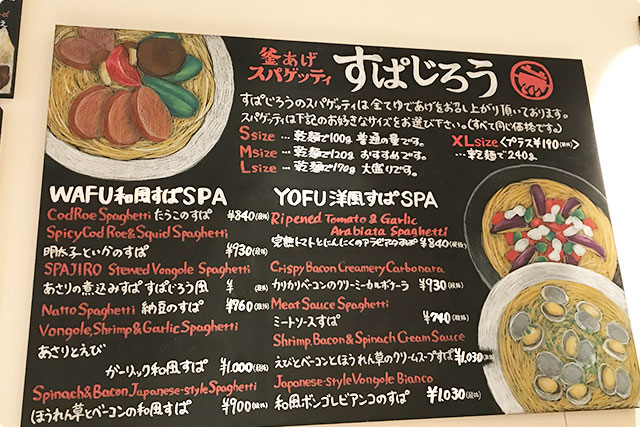 釜あげ
スパゲッティ
すぱじろう
すぱじろうのスパゲッティは全てゆであげをお召し上がり頂いております。
スパゲッティは下記のお好きなサイズをお選び下さい。(すべて同じ価格です。)
S size … 乾麺で100g 普通の量です。
M size … 乾麺で120g おすすめです。
L size … 乾麺で170g 大盛りです。
XL size <プラス¥190(税抜)>
… 乾麺で240g
WAFU 和風すぱSPA
Cod Roe Spaghetti たらこのすぱ ¥840(税抜)
Spicy Cod Roe & Squid Spaghetti
明太子といかのすぱ ¥930(税抜)
SPAJIRO Stewed Vongole Spaghetti
あさりの煮込みすぱ すぱじろう風 ¥ (税抜)
Natto Spaghetti 納豆のすぱ ¥760(税抜)
Vongole, Shrimp & Garlic Spaghetti
あさりとえび
ガーリック和風すぱ ¥1,000(税抜)
Spinach & Bacon Japanese-style Spaghetti
ほうれん草とベーコンの和風すぱ ¥900(税抜)
YOFU 洋風すぱSPA
Ripened Tomato & Garlic
Arabiata Spaghetti
完熟トマトとにんにくのアラビアータすぱ ¥840(税抜)
Crispy Bacon Creamery Carbonara
カリカリベーコンのクリーミーカルボナーラ ¥930(税抜)
Meat Sauce Spaghetti
ミートソースすぱ ¥740(税抜)
Shrimp, Bacon & Spinach Cream Sauce
えびとベーコンとほうれん草のクリームスープすぱ ¥1,030(税抜)
Japanese-style Vongole Bianco
和風ボンゴレビアンコのすぱ ¥1,030(税抜)